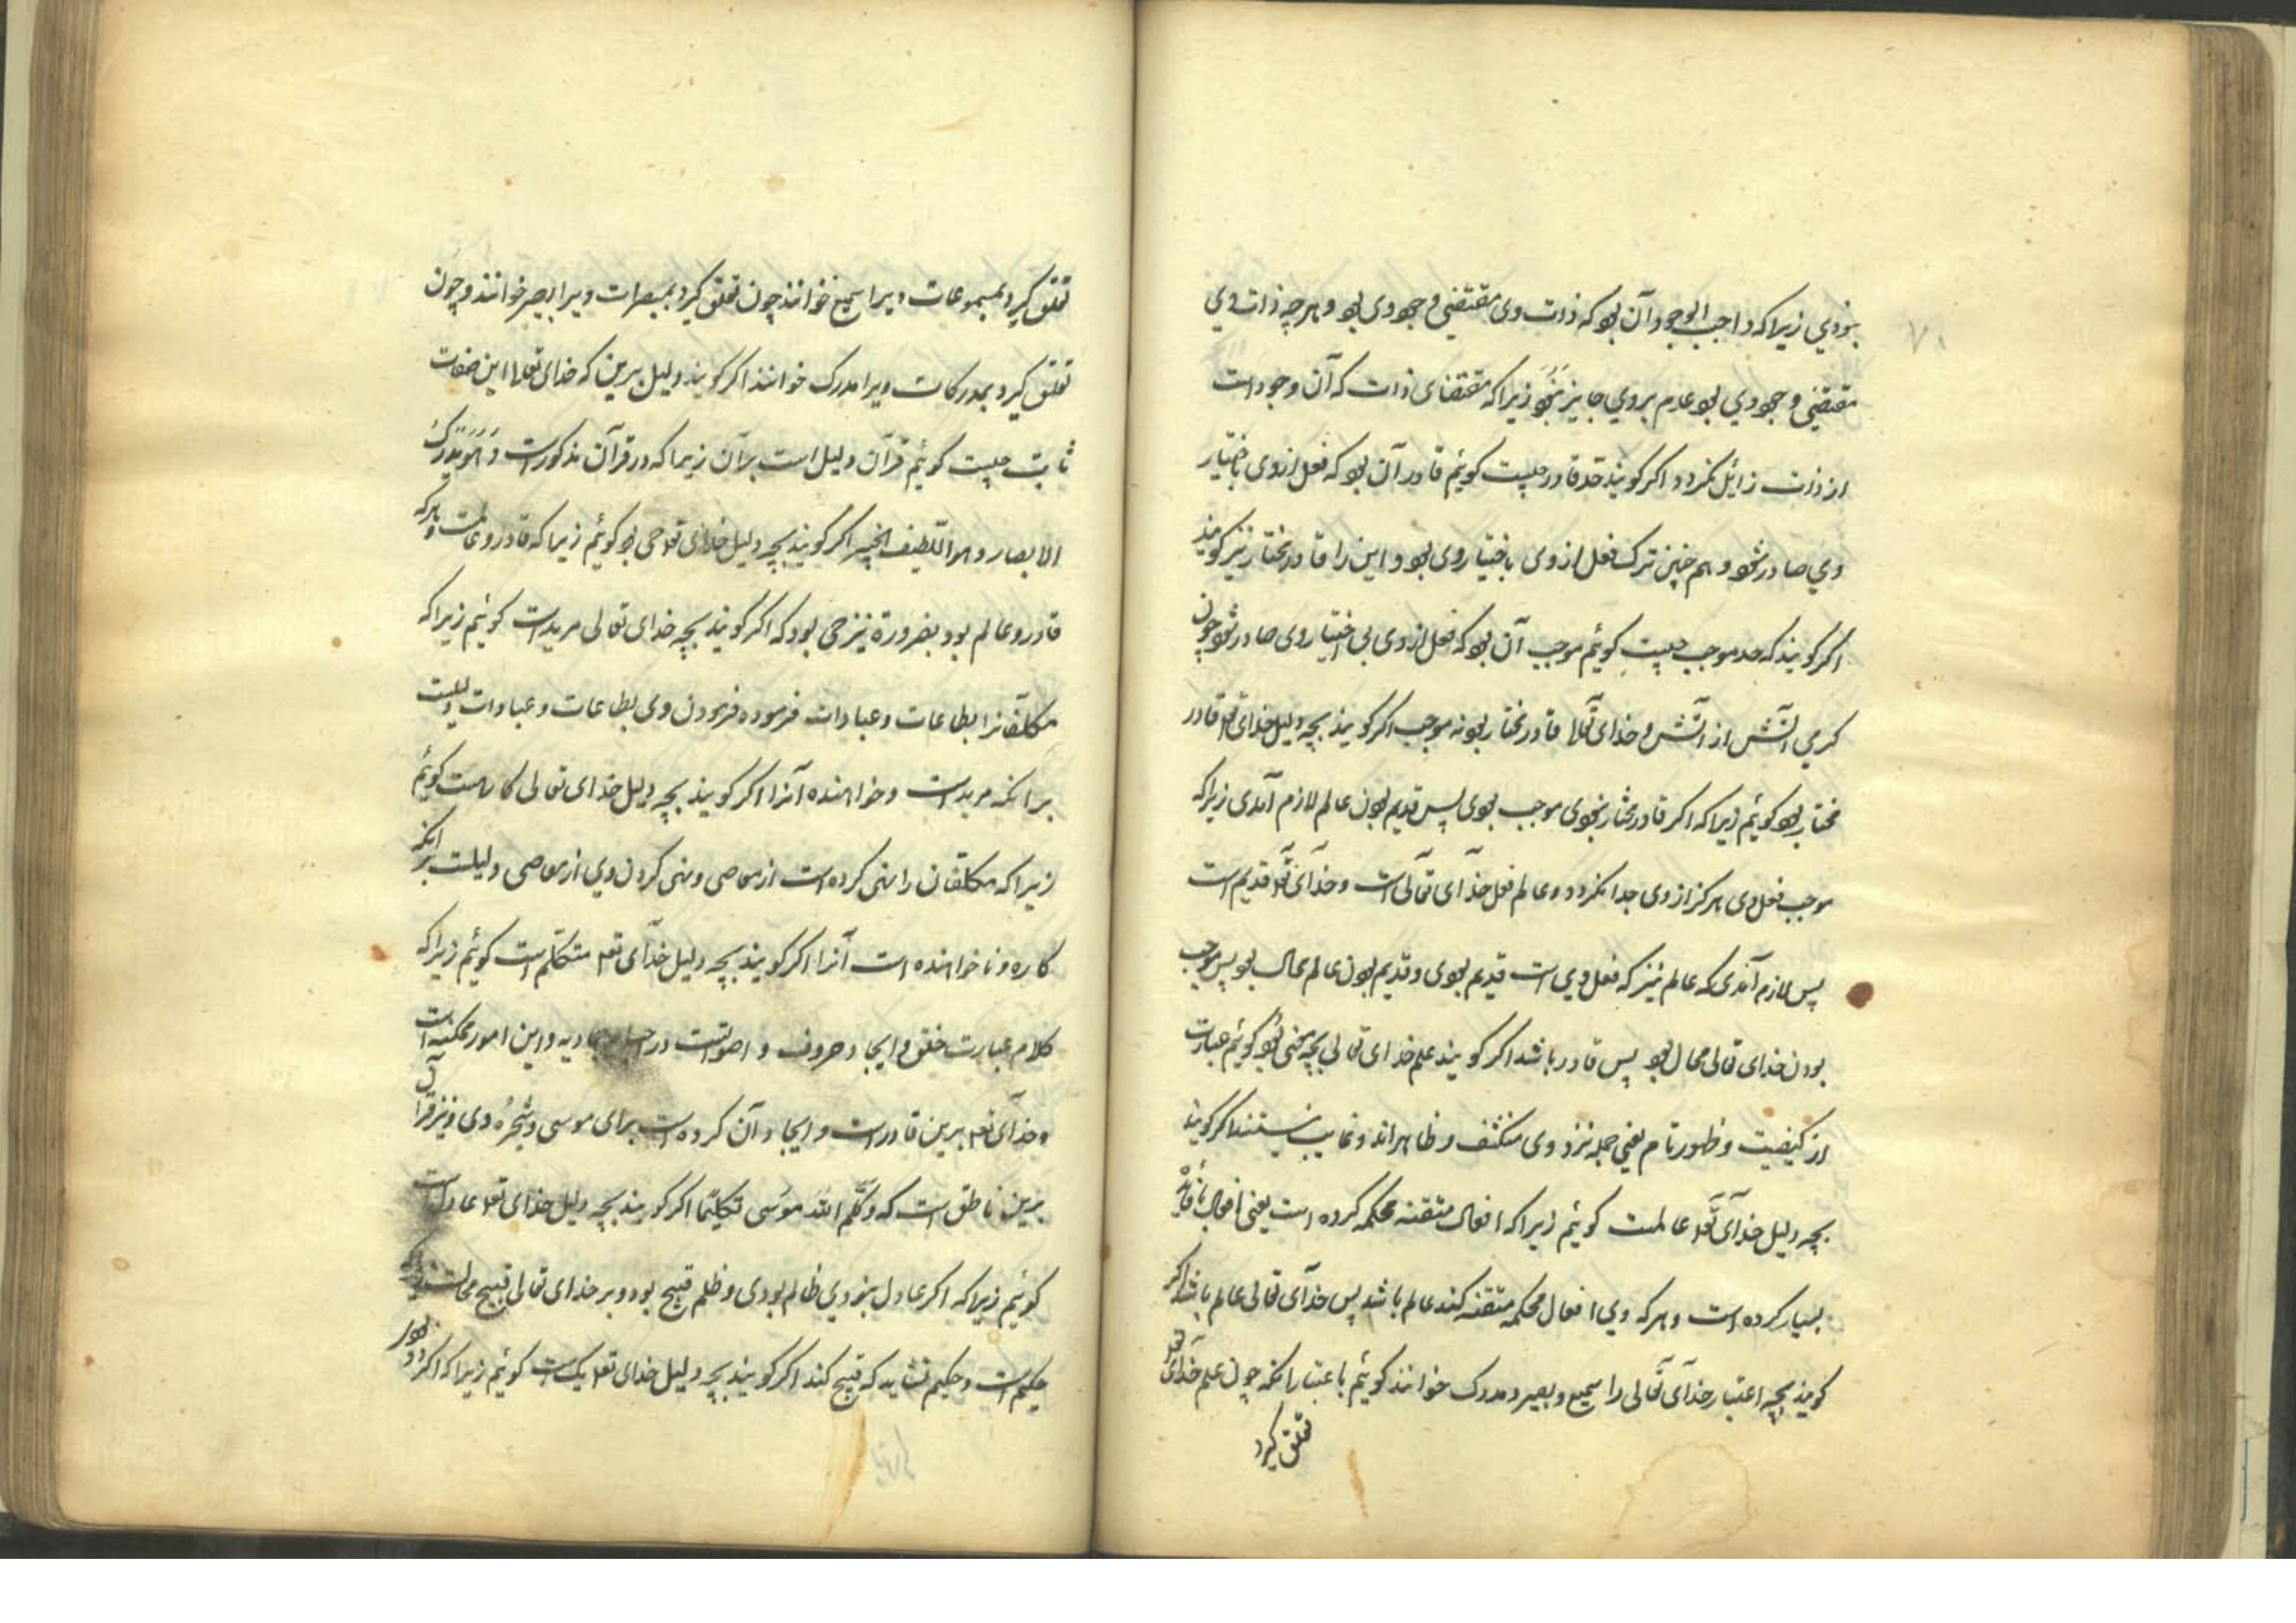 ۷۰
نبودي زیرا که واجب الوجود آن بود که ذات وی مقتضی وجود وی بود و هر چه ذات وي
مقتضی وجود وي بود عدم بر وي جایز نبود زیرا که مقتضای ذات که آن وجود است
از ذات زایل نکردد اکر کویند حد قادر چیست کوئیم قادر آن بود که فعل از وی باختیار
وي صادر شود و هم چنین ترک فعل از وی باختیار وی بود و این را قادر مختار نیز کویند
اکر کویند که حد موجب چیست کوئیم موجب آن بود که فعل از وی بی اختیار وی صادر شود چون
کرمي آتش از آتش و خدای تعالا قادر مختار بود نه موجب اکر کویند بچه دلیل خدای تعا قادر
مختار بود کوئیم زیرا که اکر قادر مختار نبودی موجب بودی پس قدیم بودن عالم لازم آمدی زیرا که
موجب فعل وی هرکز از وی جدا نکردد و عالم فعل خدای تعالی است و خدای تعا قدیم است
پس لازم آمدی که عالم نیز که فعل وي است قدیم بودی و قدیم بودن عالم محال بود پس موجب
بودن خدای تعالی محال بود پس قادر باشد اکر کویند علم خدای تعالی بچه معنی بود کوئیم عبارت
از کیفیت و ظهور تام یعنی جمله نزد وی منکشف و ظاهراند و غایب نیستند اکر کویند
بچه دلیل خدای تعا عالمست کوئیم زیرا که افعال متقنه محکمه کرده است یعنی افعال با فایده
بسیار کرده است و هر که وي افعال محکمه متقنه کند عالم باشد پس خدای تعالی عالم باشد اکر
کویند بچه اعتبار خدای تعالی را سمیع و بصیر و مدرک خوانند کوئیم باعتبار انکه چون علم خدای تعا
تعلق کیرد
تعلق کیرد بمسموعات ویرا سمیع خوانند چون تعلق کیرد بمبصرات ویرا بصیر خوانند و چون
تعلق کیرد بمدرکات ویرا مدرک خوانند اکر کویند دلیل برین که خدای تعا را این صفات
ثابت چیست کوئیم قرآن دلیل است بر آن زیرا که در قرآن مذکورست و هو یدرک
الابصار و هو اللطیف الخبیر اکر کویند بچه دلیل خدای تعا حی بود کوئیم زیرا که قادر و عالمست و هر که
قادر و عالم بود بضرورة نیز حی بود که اکر کویند بچه خدای تعالی مرید است کوئیم زیرا که
مکلفانرا بطاعات و عبادات فرموده فرمودن وی بطاعات و عبادات دلیلست
بر انکه مرید است و خواهنده آنرا اکر کویند بچه دلیل خدای تعالی کارهست کوئیم
زیرا که مکلفان را نهی کرده است از معاصی و نهی کردن وي از معاصی دلیلست بر انکه
کاره و نا خواهنده است آنرا اکر کویند بچه دلیل خدای تعا متکلم است کوئیم زیرا که
کلام عبارت خلق و ایجاد حروف و اصواتست در اجسام جمادیه و این امور ممکنه است
و خدای تعا برین قادر است و ایجاد آن کرده است برای موسی و شجره وی و نیز قرآن
برین ناطق است که و کلم الله موسی تکلیما اکر کویند بچه دلیل خدای تعا عادل است
کوئیم زیرا که اکر عادل نبودي ظالم بودی و ظلم قبیح بود و بر خدای تعالی قبیح محالست زیرا که
حکیم است و حکیم نشاید که قبیح کند اکر کویند بچه دلیل خدای تعا یکیست کوئیم زیرا که اکر دو بود